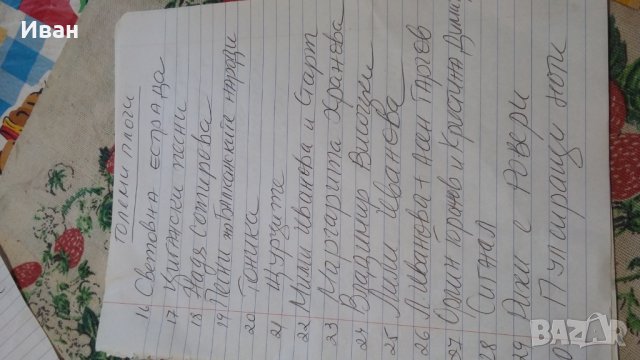 Иван
големи плочи
16 Световна естрада
17 Цигански песни
18 Надя Сотирова
19 Песни на Балканските народи
20 Тоника
21 Щурците
22 Мими Иванова и Старт
23 Маргарита Хранова
24 Владимир Висоцки
25 Лили Иванова
26 Л. Иванова + Асен Гаргов
27 Орлин Горанов и Кристина Дими
28 Сигнал
29 Рики с Ровери
Пулсиращи ноти
BAZAR
.bg